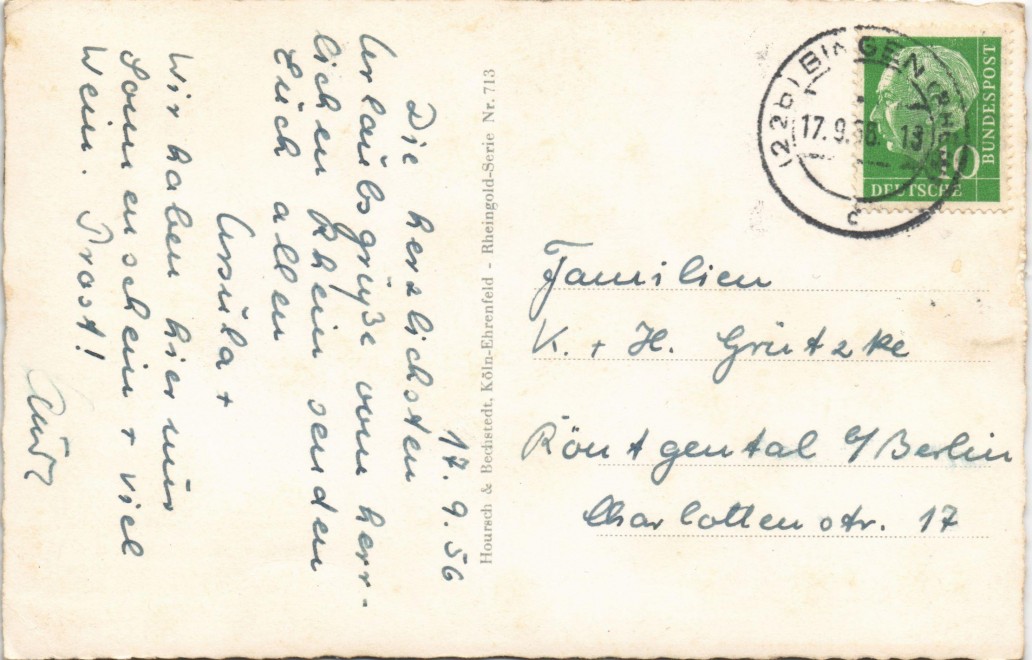 17.9.56
Die herzlichsten
Urlaubsgrüße vom herr-
lichen Rhein senden
Euch allen
Ursula +
Wir haben hier nur
Sonnenschein + viel
Wein. Prost!
Hoursch & Bechstedt, Köln-Ehrenfeld - Rheingold-Serie Nr. 713
(22b) BINGEN (RHEIN)
17.9.56. 13
a
DEUTSCHE
BUNDESPOST
10
Familien
K. + H. Grützke
Röntgental b/Berlin
Charlottenstr. 17